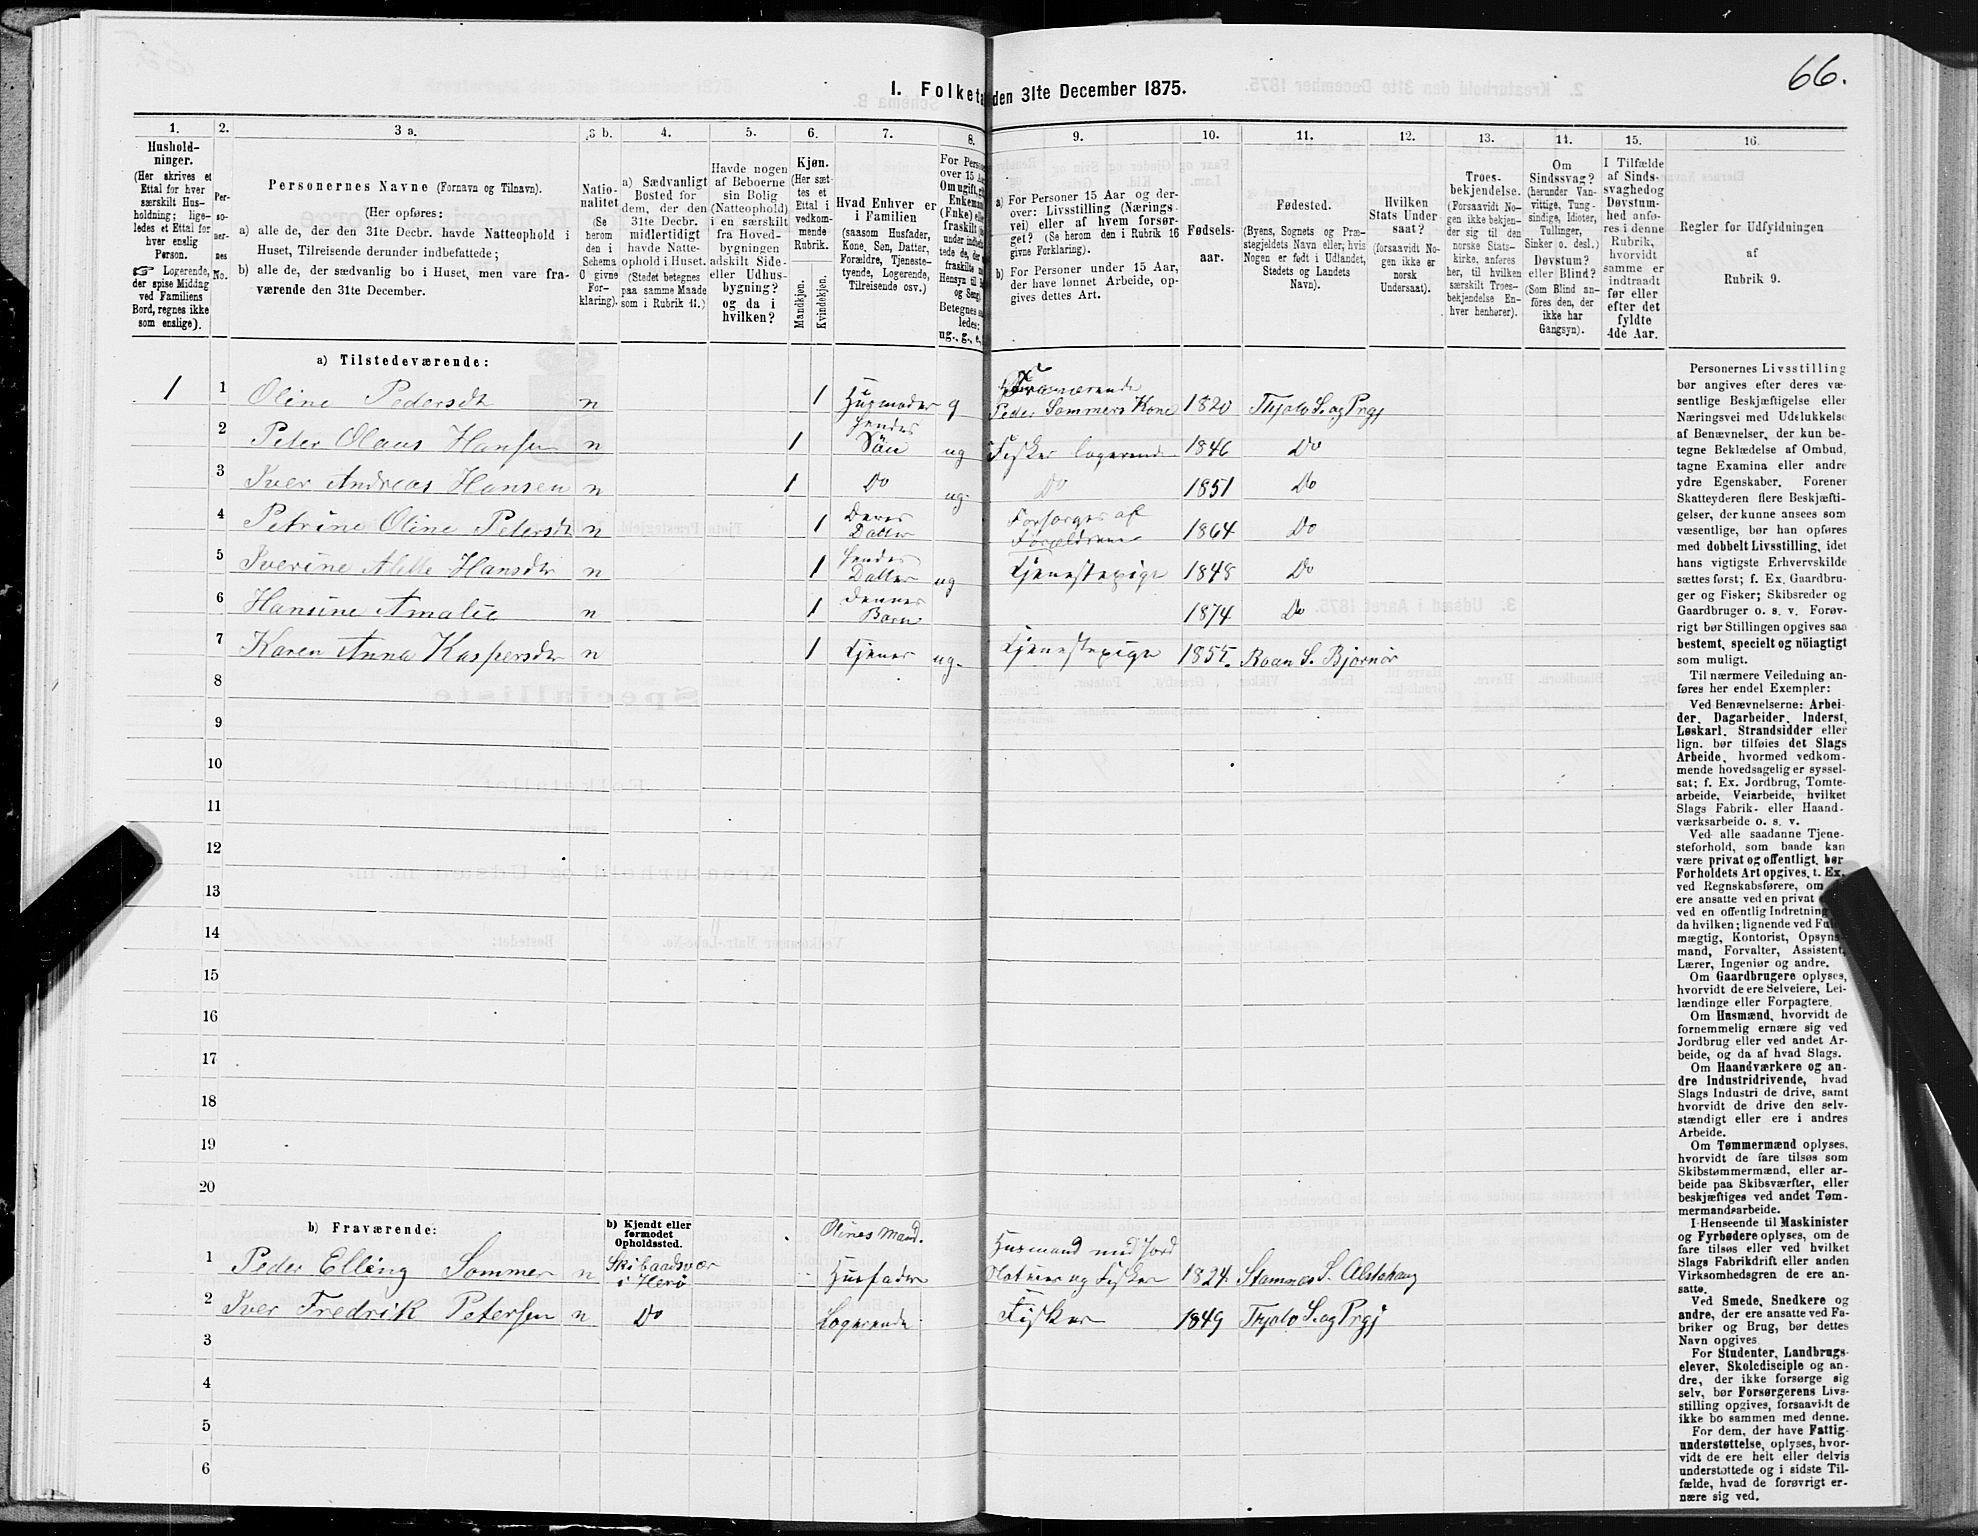 66.
I. Folketa den 31te December 1875.
1. 2. 3 a. 3 b. 4. 5. 6. 7. 8. 9. 10. 11. 12. 13. 14. 15. 16.
Hushold-
ninger.
(Her skrives et
Ettal for hver
særskilt Hus-
holdning; lige-
ledes et Ettal for
hver enslig
Person.
☞ Logerende,
der spise Middag
ved Familiens
Bord, regnes ikke
som enslige).
Per-
so-
ner-
nes
No.
Personernes Navne (Fornavn og Tilnavn).
(Her opføres:
a) alle de, der den 31te Decbr. havde Natteophold i
Huset, Tilreisende derunder indbefattede;
b) alle de, der sædvanlig bo i Huset, men vare fra-
værende den 31te December.
Natio-
nalitet
(Se
herom
den i
Schema
O givne
For-
klaring).
a) Sædvanligt
Bosted for
dem, der den
31te Decbr.
midlertidigt
havde Natte-
ophold i Huset.
(Stedet betegnes
paa samme Maade
som i Rubrik 11.)
Havde nogen
af Beboerne
sin Bolig
(Natteophold)
i en særskilt
fra Hoved-
bygningen
adskilt Side-
eller Udhus-
bygning?
og da i
hvilken?
Kjøn.
(Her sæt-
tes et
Ettal i
vedkom-
mende
Rubrik.
Mandkjøn.
Kvindekjøn.
Hvad Enhver er
i Familien
(saasom Husfader,
Kone, Søn, Datter,
Forældre, Tjeneste-
tyende, Logerende,
Tilreisende osv.)
For Person
over 15 Aar
Om ugift, g
Enkemand
(Fnke) ell
fraskilt
under indbe
tede de,
fraskilte
Hensyn til
og Seng)
Betegnes s
ledes:
ug., g., e.,
a) For Personer 15 Aar og der-
over: Livsstilling (Nærings-
vei) eller af hvem forsør-
get? (Se herom den i Rubrik 16
givne Forklaring).
b) For Personer under 15 Aar,
der have lønnet Arbeide, op-
gives dettes Art.
Fødsels-
aar.
Fødested.
(Byens, Sognets og Præ-
stegjeldets Navn eller, hvis
Nogen er født i Udlandet,
Stedets og Landets
Navn).
Hvilken
Stats Under-
saat?
(forsaavidt No-
gen ikke er
norsk
Undersaat).
Troes-
bekjendelse.
(Forsaavidt No-
gen ikke bekjen-
der sig til den
norske Stats-
kirke, anføres
her, til hvilken
særskilt Troes-
bekjendelse En-
hver henhører).
Om
Sindssvag?
(herunder Van-
vittige, Tung-
sindige, Idioter,
Tullinger,
Sinker o. desl.)
Døvstum?
eller Blind?
(Som Blind an-
føres den, der
ikke har
Gangsyn).
I Tilfælde
af Sinds-
svaghed og
Døvstum-
hed anfø-
res i denne
Rubrik,
hvorvidt
samme er
indtraadt
før eller
efter det
fyldte
4de Aar.
Regler for Udfyldningen
af
Rubrik 9.
a) Tilstedeværende:
Fraværende
1 1 Oline Pedersdt n 1 Husmoder g Peder Sommers Kone 1820 Thjøtø S. og Prgj
2 Peter Olaus Hansen n 1 Hendes Søn ug Fisker logerende 1846 Do
3 Iver Andreas Hansen n 1 Do ug. Do 1851 Do
4 Petrine Oline Petersdt n 1 Deres Datter Forsørges af Forældrene 1864 Do
5 Iverine Hansdtr n 1 hendes Datter ug Tjenestepige 1848 Do
6 Hansine Amalie n 1 Dennes Barn 1874 Do
7 Karen Anna Kaspersdtr n 1 Tjener ug. Tjenestepige 1855. Roan S. Bjørnør
8
9
10
11
12
13
14
15
16
17
18
19
20
b) Fraværende:
b) Kjendt eller
formodet
Opholdssted.
Olines Mand.
1 Peder Elling Sommer n Skibaadsvær i Herø Husfader Husmand med Jord Notnier og Fisker 1824 Stamnes S. Alstahaug
2 Iver Fredrik Petersen n Do Logerende Fisker 1849 Thjøtø S. og Prgj
3
4
5
6
Personernes Livsstilling
bør angives efter deres væ-
sentlige Beskjæftigelse eller
Næringsvei med Udelukkelse
af Benævnelser, der kun be-
tegne Beklædelse af Ombud,
tagne Examina eller andre
ydre Egenskaber. Forener
Skatteyderen flere Beskjæfti-
gelser, der kunne ansees som
væsentlige, bør han opføres
med dobbelt Livsstilling, idet
hans vigtigste Erhvervskilde
sættes først; f. Ex. Gaardbru-
ger og Fisker; Skibsreder og
Gaardbruger o. s. v. Forøv-
rigt bør Stillingen opgives saa
bestemt, specielt og nöiagtigt
som muligt.
Til nærmere Veiledning an-
føres her endel Exempler:
Ved Benævnelserne: Arbei-
der, Dagarbeider, Inderst,
Løskarl, Strandsidder eller
lign. bør tilføies det Slags
Arbeide, hvormed vedkom-
mende hovedsagelig er syssel-
sat; f. Ex. Jordbrug, Tomte-
arbeide, Veiarbeide, hvilket
Slags Fabrik- eller Haand-
værksarbeide o. s. v.
Ved alle saadanne Tjene-
steforhold, som baade kan
være privat og offentligt, bør
Forholdets Art opgives, t. Ex.
ved Regnskabsførere, om
ere ansatte ved en privat
ved en offentlig Indretning
da hvilken; lignende ved Ful
mægtig, Kontorist, Opsyns-
mand, Forvalter, Assistent,
Lærer, Ingeniør og andre.
Om Gaardbrugere oplyses,
hvorvidt de ere Selveiere, Lei-
lændinge eller Forpagtere.
Om Husmænd, hvorvidt de
fornemmelig ernære sig ved
Jordbrug eller ved andet Ar-
beide, og da af hvad Slags.
Om Haandværkere og an-
dre Industridrivende, hvad
Slags Industri de drive, samt
hvorvidt de drive den selv-
stændigt eller ere i andres
Arbeide.
Om Tømmermænd oplyses,
hvorvidt de fare tilsøs som
Skibstømmermænd, eller ar-
beide paa Skibsværfter, eller
beskjæftiges ved andet Tøm-
mermandsarbeide.
I Henseende til Maskinister
og Fyrbødere oplyses, om de
fare tilsøs eller ved hvilket
Slags Fabrikdrift eller anden
Virksomhedsgren de ere an-
satte.
Ved Smede, Snedkere og
andre, der ere ansatte ved Fa-
briker og Brug, bør dettes
Navn opgives
For Studenter, Landbrugs-
elever, Skoledisciple og an-
dre, der ikke forsørge sig
selv, bør Forsørgerens Livs-
stilling opgives, forsaavidt de
ikke bo sammen med denne.
For dem, der have Fattig-
understøttelse, oplyses, hvor-
vidt de ere helt eller delvis
understøttede og i sidste Til-
fælde, hvad de forøvrigt er-
nære sig ved.